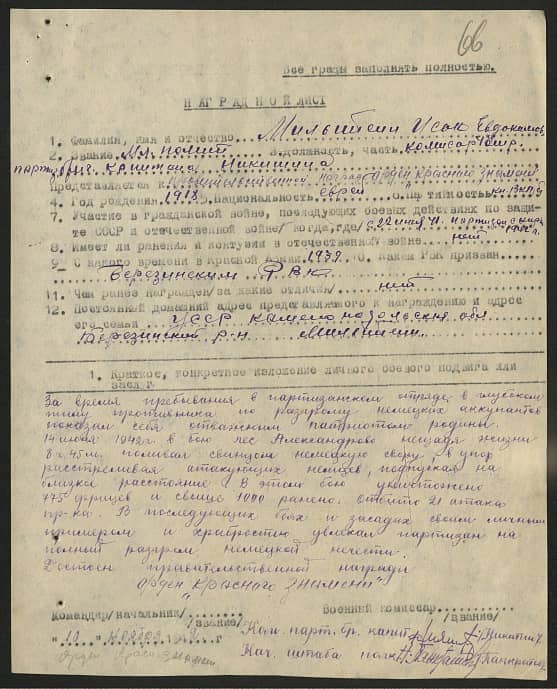 66
Все графы заполнять полностью.
НАГРАДНОЙ ЛИСТ
1. Фамилия, имя и отчество... Мильштейн Исак Евдокимов.
2. Звание Мл. полит 3. должность, часть комисар 1 отр.
парт. бриг. капитана Никитина
Представляется к правительственной награде "Орден Красного Знамени"
4. Год рождения 1918 5. Национальность еврей 6. Партийность кн. ВКП/б
7. Участие в гражданской войне, последующих боевых действиях по защи-
те СССР и отечественной войне/когда, где/ с 22 июня 41.
8. Имеет ли ранения и контузии в отечественной войне нет
9. С какого времени в Красной Армии 1939 10. Каким РВК призван
Березинским РВК
11. Чем ранее награжден/за какие отличия/ нет
12. Постоянный домашний адрес представляемого к награждению и адрес
его семьи УССР обл
Березинский р-н
1. Краткое, конкретное изложение личного боевого подвига или
заслуг.
За время пребывания в партизанском отряде в глубоком
тылу противника по разгрому немецких аккупантов
показал себя отважным патриотом родины.
14 июля 1942 г. в бою лес Александрово нещадя жизни
8 г. 45 м. поливал свинцом немецкую свору, в упор
расстреливая атакующих немцев, подпуская на
близкое расстояние. В этом бою уничтожено
475 фрицев и свыше 1000 ранено. Отбито 21 атака
пр-ка. В последующих боях и засадах своим личным
примером и храбростью увлекал партизан на
полный разгром немецкой нечести.
Достоен правительственной награды
"орден Красного Знамени"
Командир/начальник/ Военный комиссар
/звание/ /звание/
"10" ноября г
Ком. парт. бр. капит /Никитин/
Орден Красн Знамени
Нач. штаба полк. /Панкратов